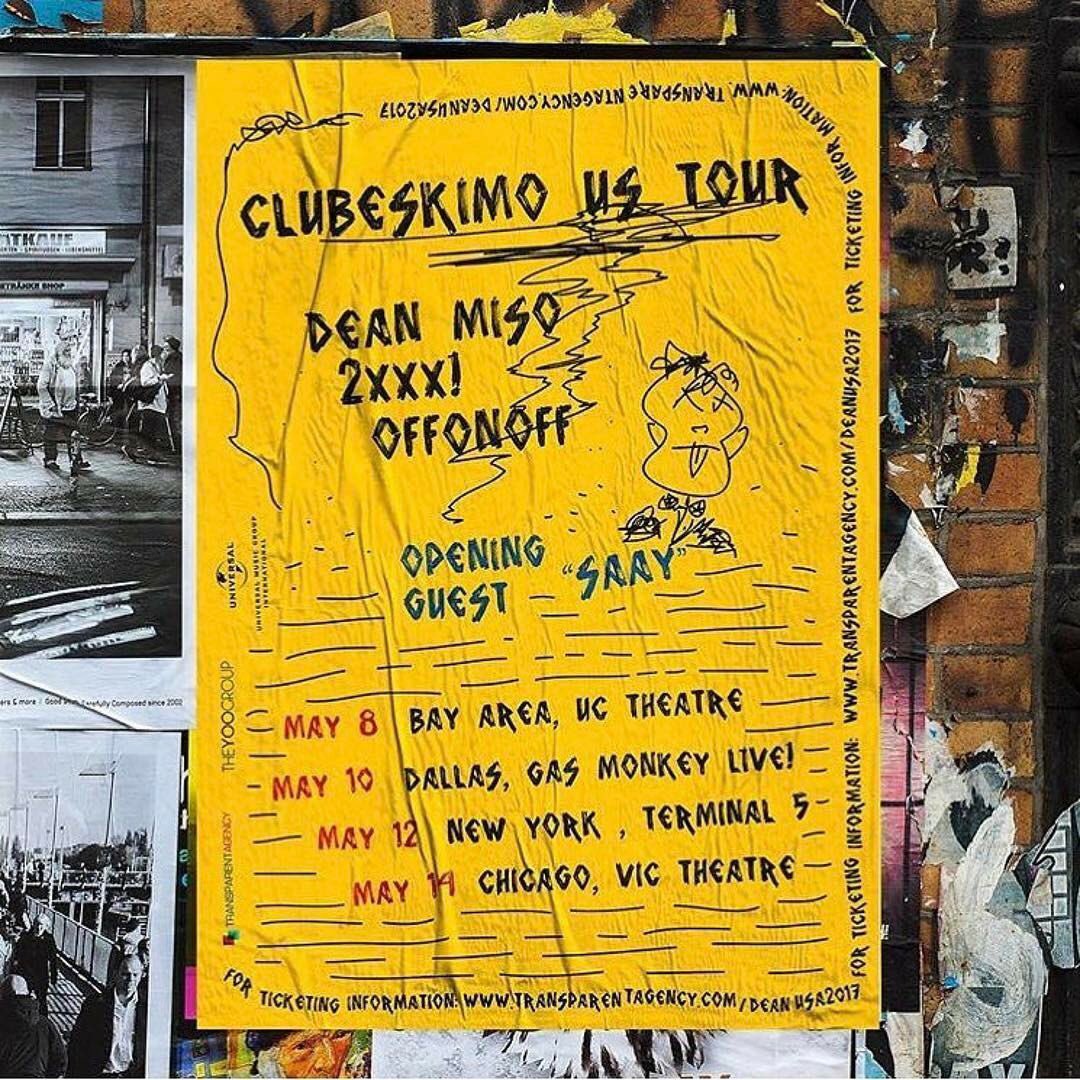 FOR TICKETING INFORMATION: WWW.TRANSPARENTAGENCY.COM/DEANUSA2017
CLUBESKIMO US TOUR
DEAN MISO
2XXX!
OFFONOFF
OPENING
GUEST "SAAY"
MAY 8 BAY AREA, UC THEATRE
MAY 10 DALLAS, GAS MONKEY LIVE!
MAY 12 NEW YORK, TERMINAL 5
MAY 14 CHICAGO, VIC THEATRE
FOR TICKETING INFORMATION: WWW.TRANSPARENTAGENCY.COM/DEANUSA2017
FOR TICKETING INFORMATION: WWW.TRANSPARENTAGENCY.COM/DEANUSA2017
UNIVERSAL
UNIVERSAL MUSIC GROUP
INTERNATIONAL
THEYOOGROUP
TRANSPARENTAGENCY
GETRÄNKE SHOP
ers & more / Good Carefully Composed since 2002